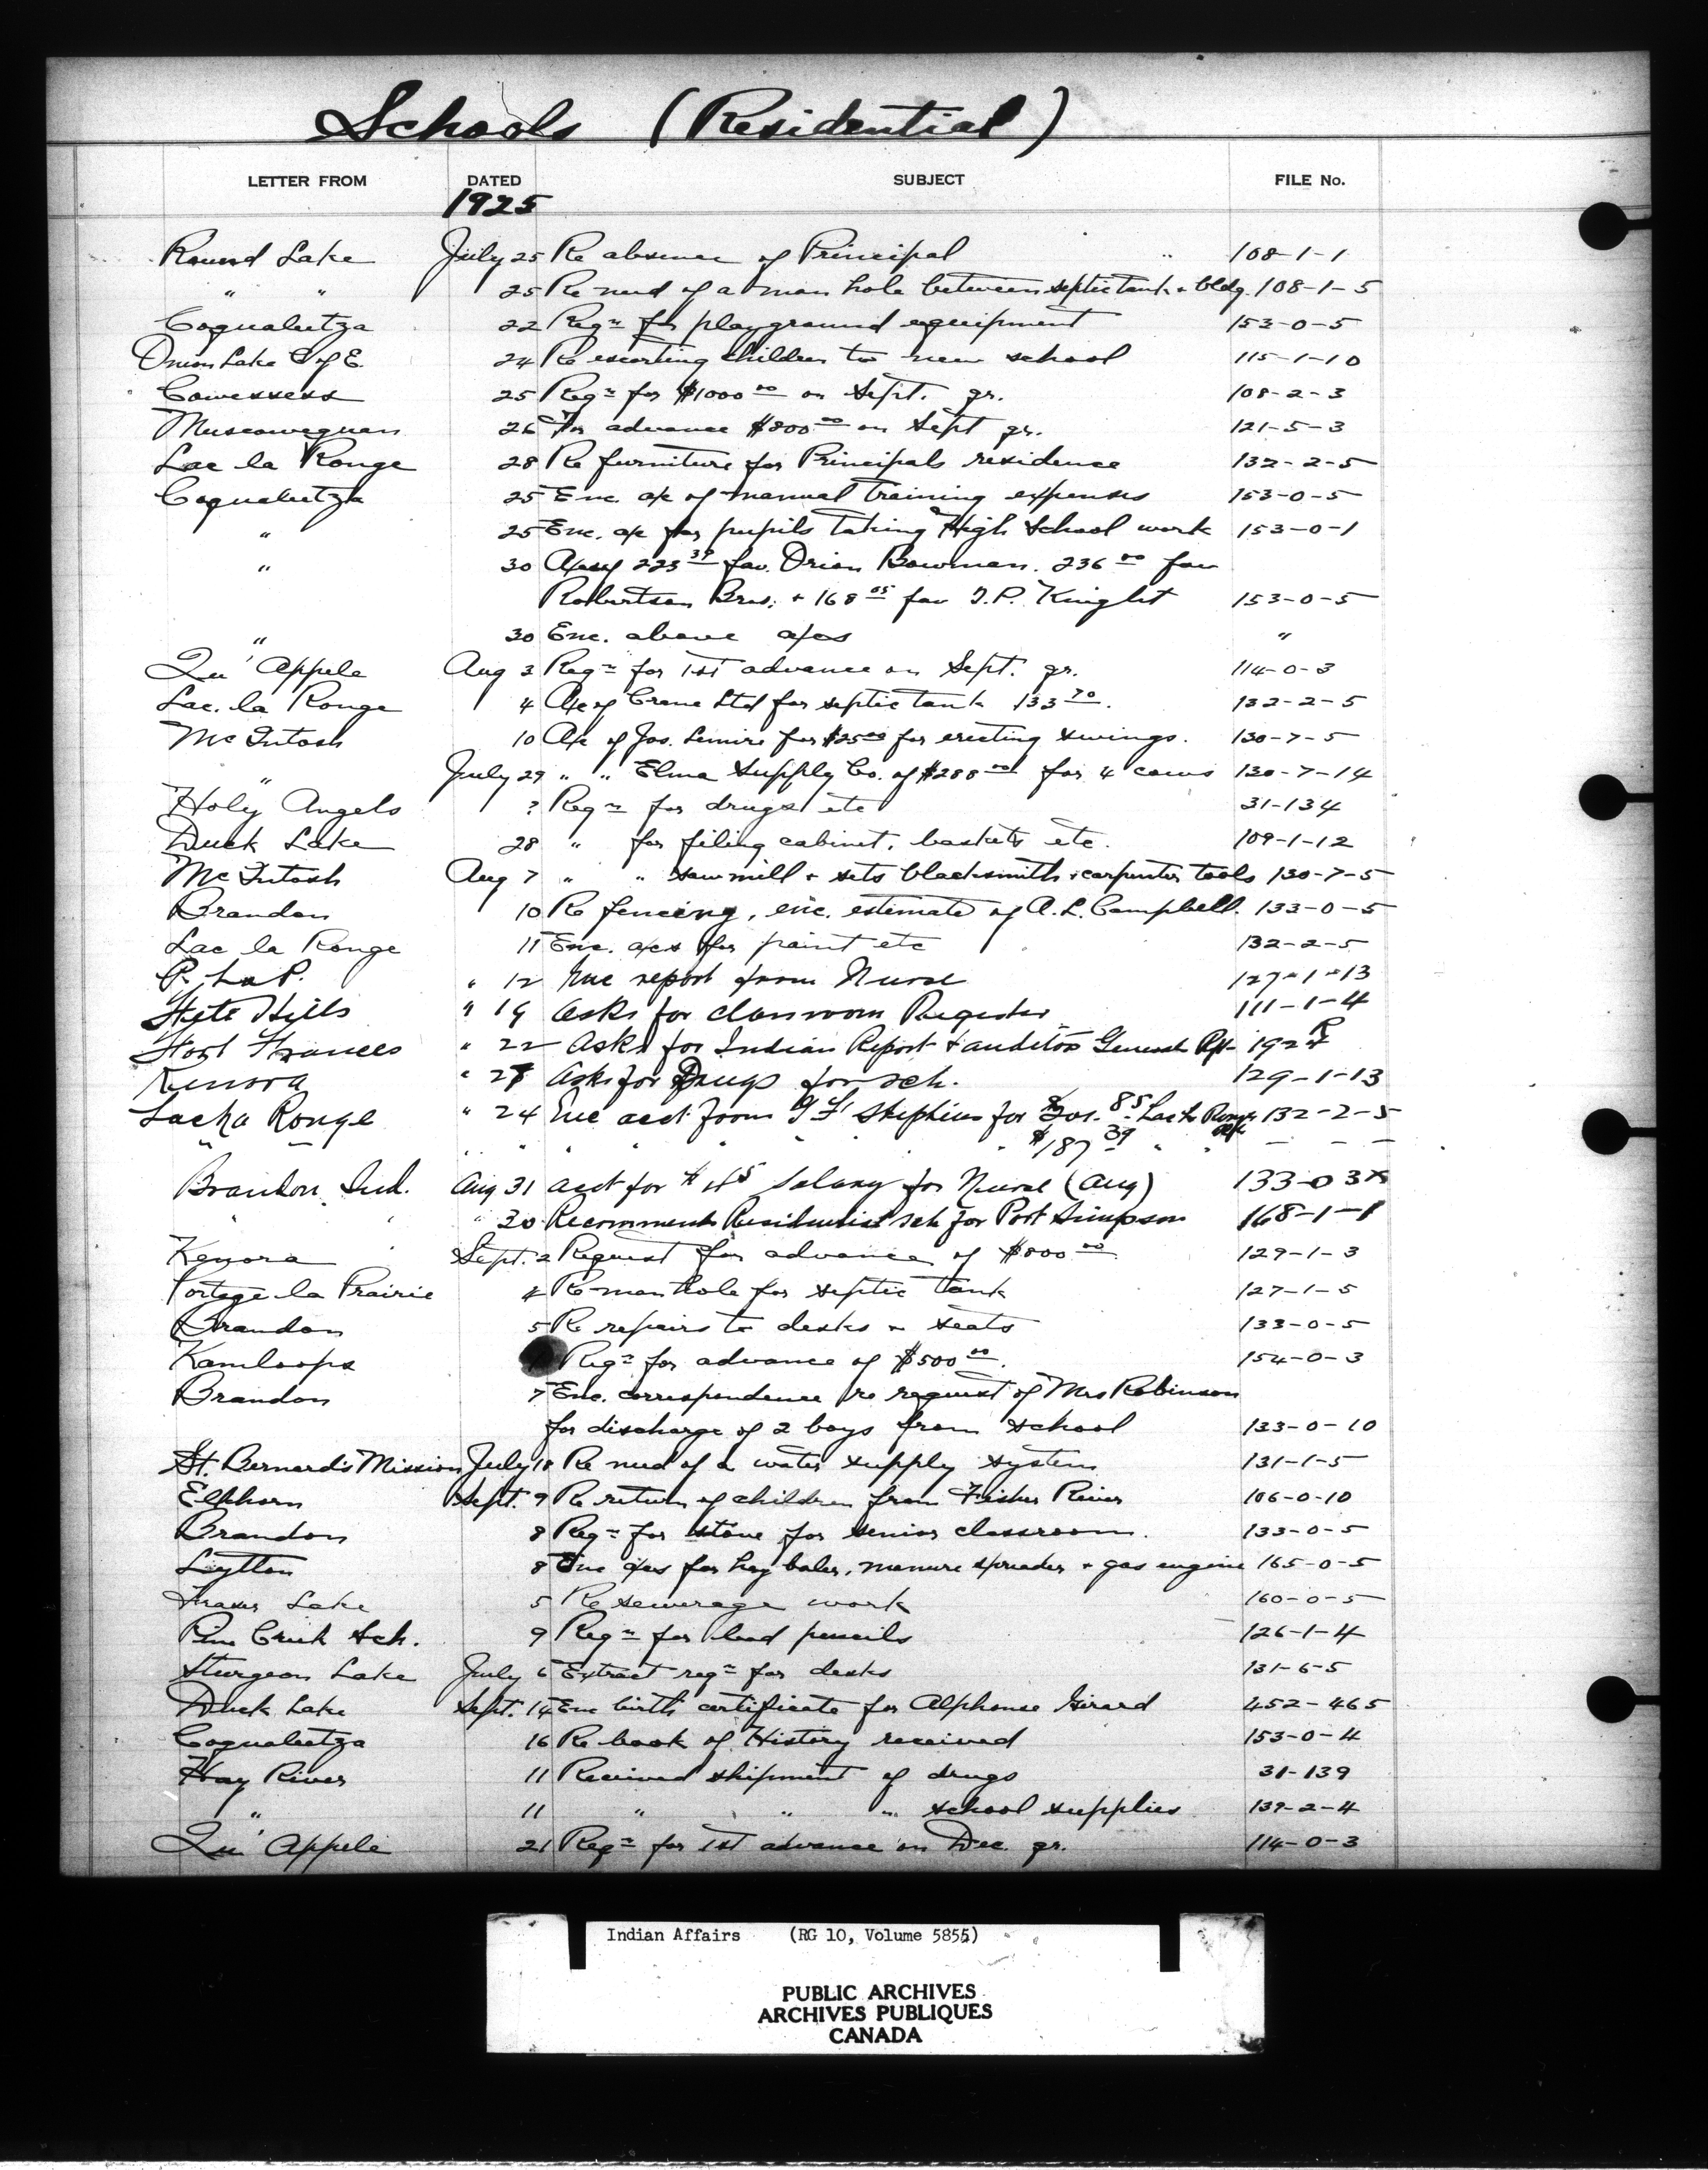 Schools (Residential)
LETTER FROM DATED SUBJECT FILE No.
1925
Round Lake July 25 Re absence of Principal 108-1-1
" " 25 Re need of a man hole between septic tank + bldg. 108-1-5
Coqualeetza 22 Reqn for playground equipment 153-0-5
Onion Lake C of E. 24 Re escorting children to new school 115-1-10
Cowessess 25 Reqn for $1000 00 on Sept. qr. 108-2-3
Muscowequan 26 For advance $800 00 on Sept qr. 121-5-3
Lac la Ronge 28 Re furniture for Principals residence 132-2-5
Coqualeetza 25 Enc. a/c of manual training expenses 153-0-5
" 25 Enc. a/c for pupils taking High School work 153-0-1
" 30 223 39 fav. Orion Bowman. 236 00 fav
Robertson Bros. + 168 05 fav T.P. Knight 153-0-5
" 30 Enc. above a/cs "
Qu'Appele Aug 3 Reqn for 1st advance on Sept. qr. 114-0-3
Lac. la Ronge 4 A/c of Crane Ltd for septic tank 133 70. 132-2-5
McIntosh 10 A/c of Jos. Lemire for $25 00 for erecting swings. 130-7-5
" July 29 " " Elma Supply Co. of $288 00 for 4 cows 130-7-14
Holy Angels ? Reqn for drugs etc 31-134
Duck Lake 28 " for filing cabinet, baskets etc. 109-1-12
McIntosh Aug 7 " " sawmill + sets blacksmith + carpenter tools 130-7-5
Brandon 10 Re fencing, enc. estimate of A.L. Campbell. 133-0-5
Lac la Ronge 11 Enc. a/cs for paint etc 132-2-5
P. La P. " 12 Enc report from Nurse 127-1-13
File Hills " 19 Asks for classroom Register 111-1-4
Fort Frances " 22 Asks for Indian Report + auditor General Rpt
Kenora " Asks for Drugs for sch. 129-1-13
Lac La Ronge " 24 Enc acct from for 85 Lac La Ronge 132-2-5
" " " " " " $187 39 " " - - -
Brandon Ind. Aug 31 acct for $ salary for Nurse (Aug) 133-0
" " " 30 Recommends Residential sch for Port Simpson 168-1-1
Kenora Sept. 2 Request for advance of $800 00 129-1-3
Portage la Prairie 4 Re manhole for septic tank 127-1-5
Brandon 5 Re repairs to desks + seats 133-0-5
Kamloops Reqn for advance of $500 00. 154-0-3
Brandon 7 Enc. correspondence re request of Mrs Robinson
for discharge of 2 boys from school 133-0-10
St. Bernard's Mission July 18 Re need of a water supply system 131-1-5
Elkhorn Sept. 9 Re return of children from Fisher River 106-0-10
Brandon 8 Reqn for stove for senior classroom. 133-0-5
Lytton 8 Enc a/cs for hay baler, manure spreader + gas engine 165-0-5
Fraser Lake 5 Re sewerage work 160-0-5
Pine Creek Sch. 9 Reqn for lead pencils 126-1-4
Sturgeon Lake July 6 Extract reqn for desks 131-6-5
Duck Lake Sept. 14 Enc birth certificate for Alphonse Girard 452-465
Coqualeetza 16 Re book of History received 153-0-4
Hay River 11 Received shipment of drugs 31-139
" 11 " " " school supplies 139-2-4
Qu'Appele 21 Reqn for 1st advance on Dec. qr. 114-0-3
Indian Affairs (RG 10, Volume 5855)
PUBLIC ARCHIVES
ARCHIVES PUBLIQUES
CANADA